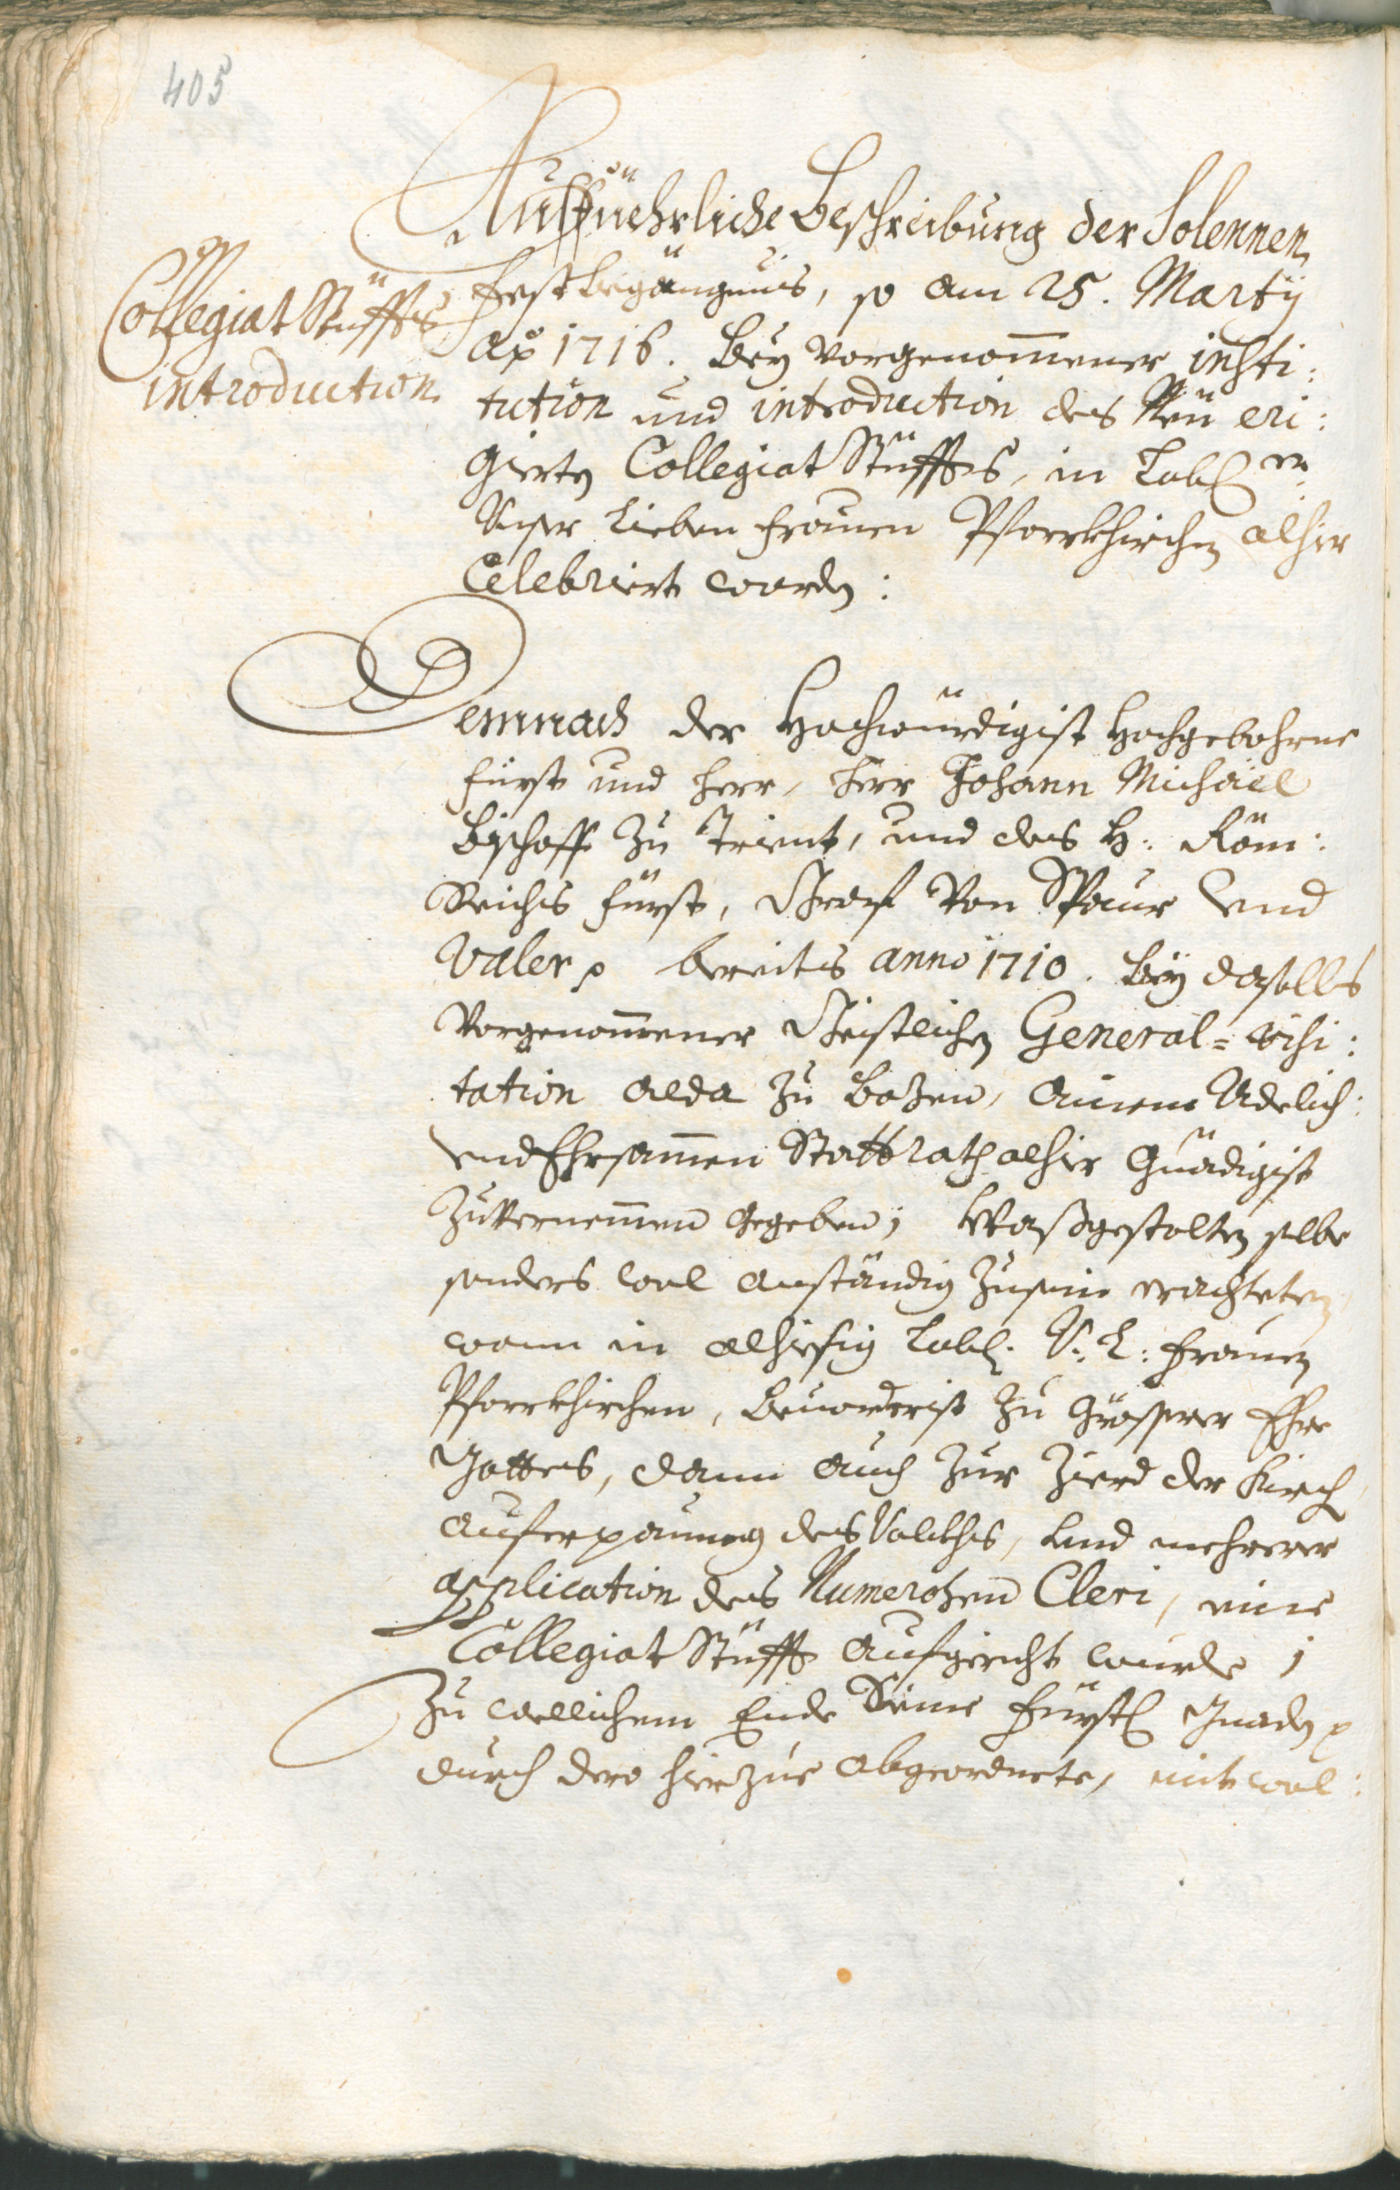 405
Außfüehrliche Beschreibung der Solennen
Festbegängnus, so am 25. Martÿ
Ao 1716. Beÿ vorgenommener insti:
tution und introduction des Neü eri:
gierten Collegiat Stüffts, in Löbl.er
Unser Lieben Frauen Pfarrkhirchen alhier
Celebriert worden:
Collegiat Stüffts
introduction
Demnach der Hochwürdigist Hochgebohrne
Fürst und Herr, Herr Johann Michäel
Bischoff zu Trient, und des H: Röm:
Reichs Fürst, Graf von Spaur und
Valer p bereits anno 1710. beÿ daselbs
vorgenommener Geistlichen General=visi:
tation alda zu Bozen, ainem Adelich:
und Ehrsammen Stattrath alhier Gnädigist
zuvernemmen gegeben; Waßgestalten selbe
sonders wol anständig zusein erachteten,
wann in alhiesig Löbl. U: L: Frauen
Pfarrkhirchen, bevorderist zu Grösserer Ehre
Gottes, dann auch zur Zierd der Kirch
auferpauung des Volckhs, und mehrerer
application des Numerosen Cleri, eine
Collegiat Stüfft aufgericht wurde;
Zu welchem Ende Seine Fürstl Gnaden p
durch dero hierzue abgeordnete, mit wol: